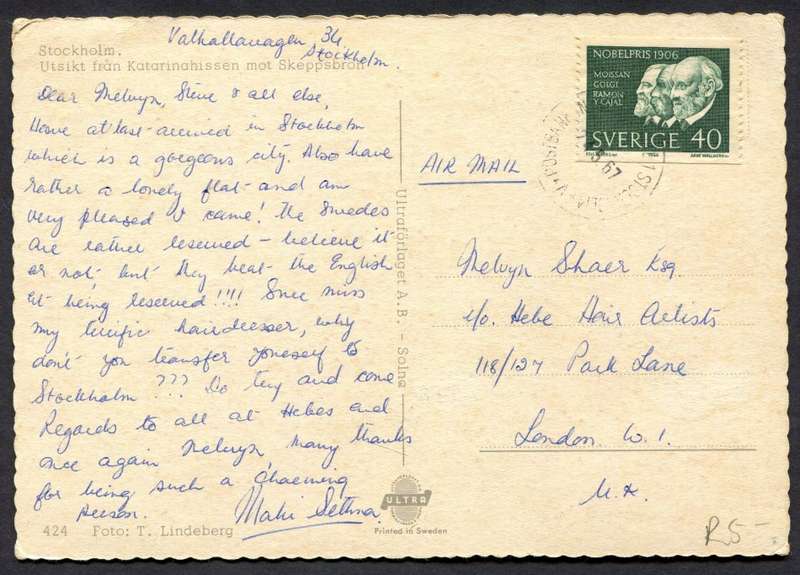 Valhallavagen 34
Stockholm.
Stockholm.
Utsikt från Katarinahissen mot Skeppsbron
Dear Melvyn, Steve & all else,
Have at last arrived in Stockholm
which is a gorgeous city. Also have
rather a lovely flat and am
very pleased I came! The Swedes
are rather reserved - believe it
or not, but they beat the English
at being reserved!!!! Since miss
my terrific hairdresser, why
don't you transfer yourself to
Stockholm ??? Do try and come
Regards to all at Hebes and
once again Melvyn, many thanks
for being such a charming
person.
424 Foto: T. Lindeberg
Ultraförlaget A. B. - Solna
ULTRA
Printed in Sweden
AIR MAIL
NOBELPRIS 1906
MOISSAN
GOLGI
RAMON
Y CAJAL
SVERIGE 40
67
Melvyn Shaer Esq.
c/o. Hebe Hair Artists
118/127 Park Lane
London W.1.
U.K.
R5-